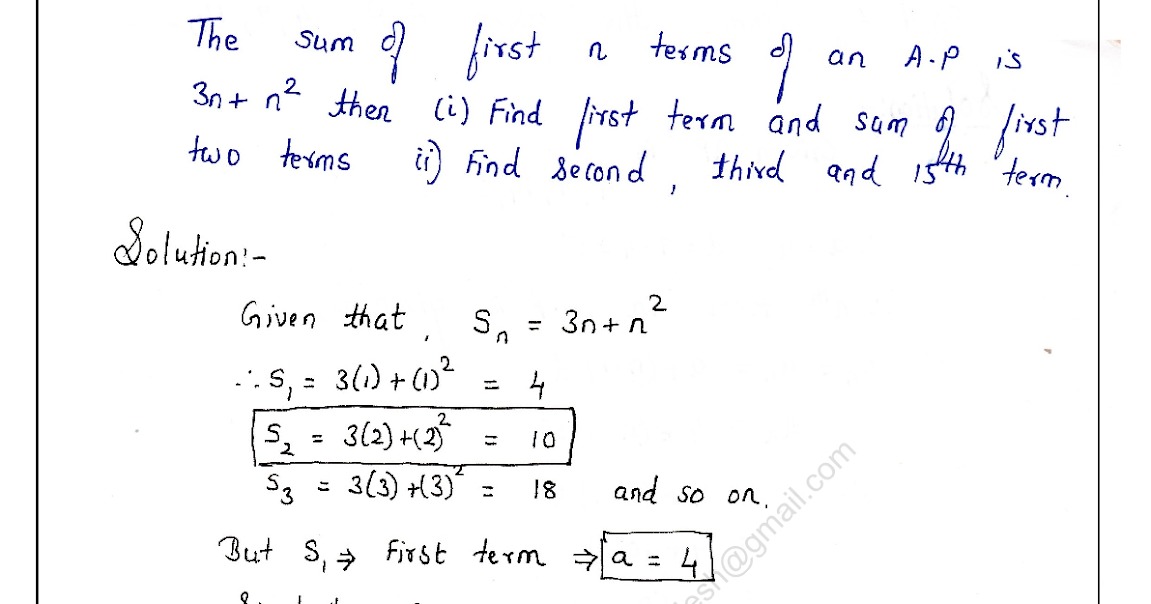 The sum of first n terms of an A.P is
3n + n² then (i) Find first term and sum of first
two terms ii) Find second, third and 15th term.
Solution:-
Given that, Sₙ = 3n + n²
∴ S₁ = 3(1) + (1)² = 4
S₂ = 3(2) + (2)² = 10
S₃ = 3(3) + (3)² = 18 and so on.
But S₁ ⇒ First term ⇒ a = 4
@gmail.com